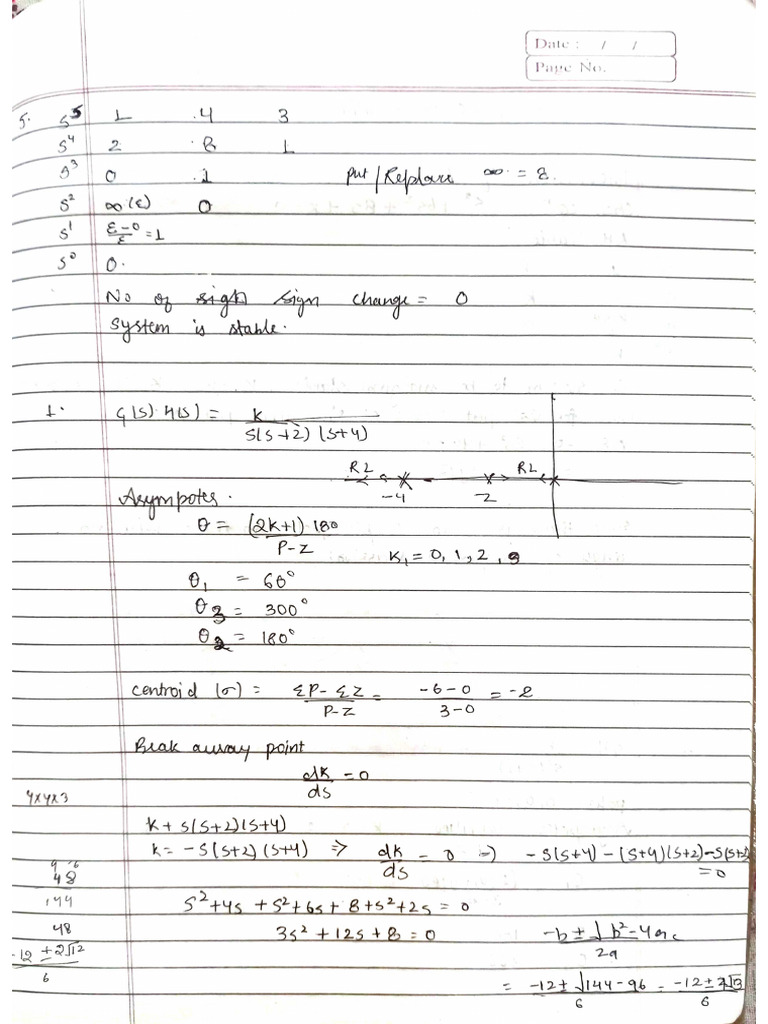 Date : / /
Page No.
5. s⁵ 1 4 3
s⁴ 2 8 1
s³ 0 .1 Put/Replace ∞ = ε.
s² ∞(ε) 0
s¹ (ε-0)/ε = 1
s⁰ 0.
No of sign change = 0
system is stable.
1. G(s).H(s) = k / s(s+2)(s+4)
RL RL
-4 -2
Asympotes.
θ = (2k+1) 180 / P-Z
K, = 0, 1, 2, 3
θ₁ = 60°
θ3 = 300°
θ2 = 180°
centroid (σ) = ΣP- ΣZ / P-Z = -6-0 / 3-0 = -2
Beak away point
dk/ds = 0
4x4x3
k + s(s+2)(s+4)
k = -s(s+2)(s+4) ⇒ dk/ds = 0 → -s(s+4) - (s+4)(s+2) - s(s+2) = 0
9 6
48
144
s²+4s + s²+6s+8+s²+2s = 0
48
3s² + 12s + 8 = 0
-b ± √b²-4ac / 2a
-12 ± 2√12 / 6
= -12 ± √144-96 / 6 = -12 ± 4√3 / 6